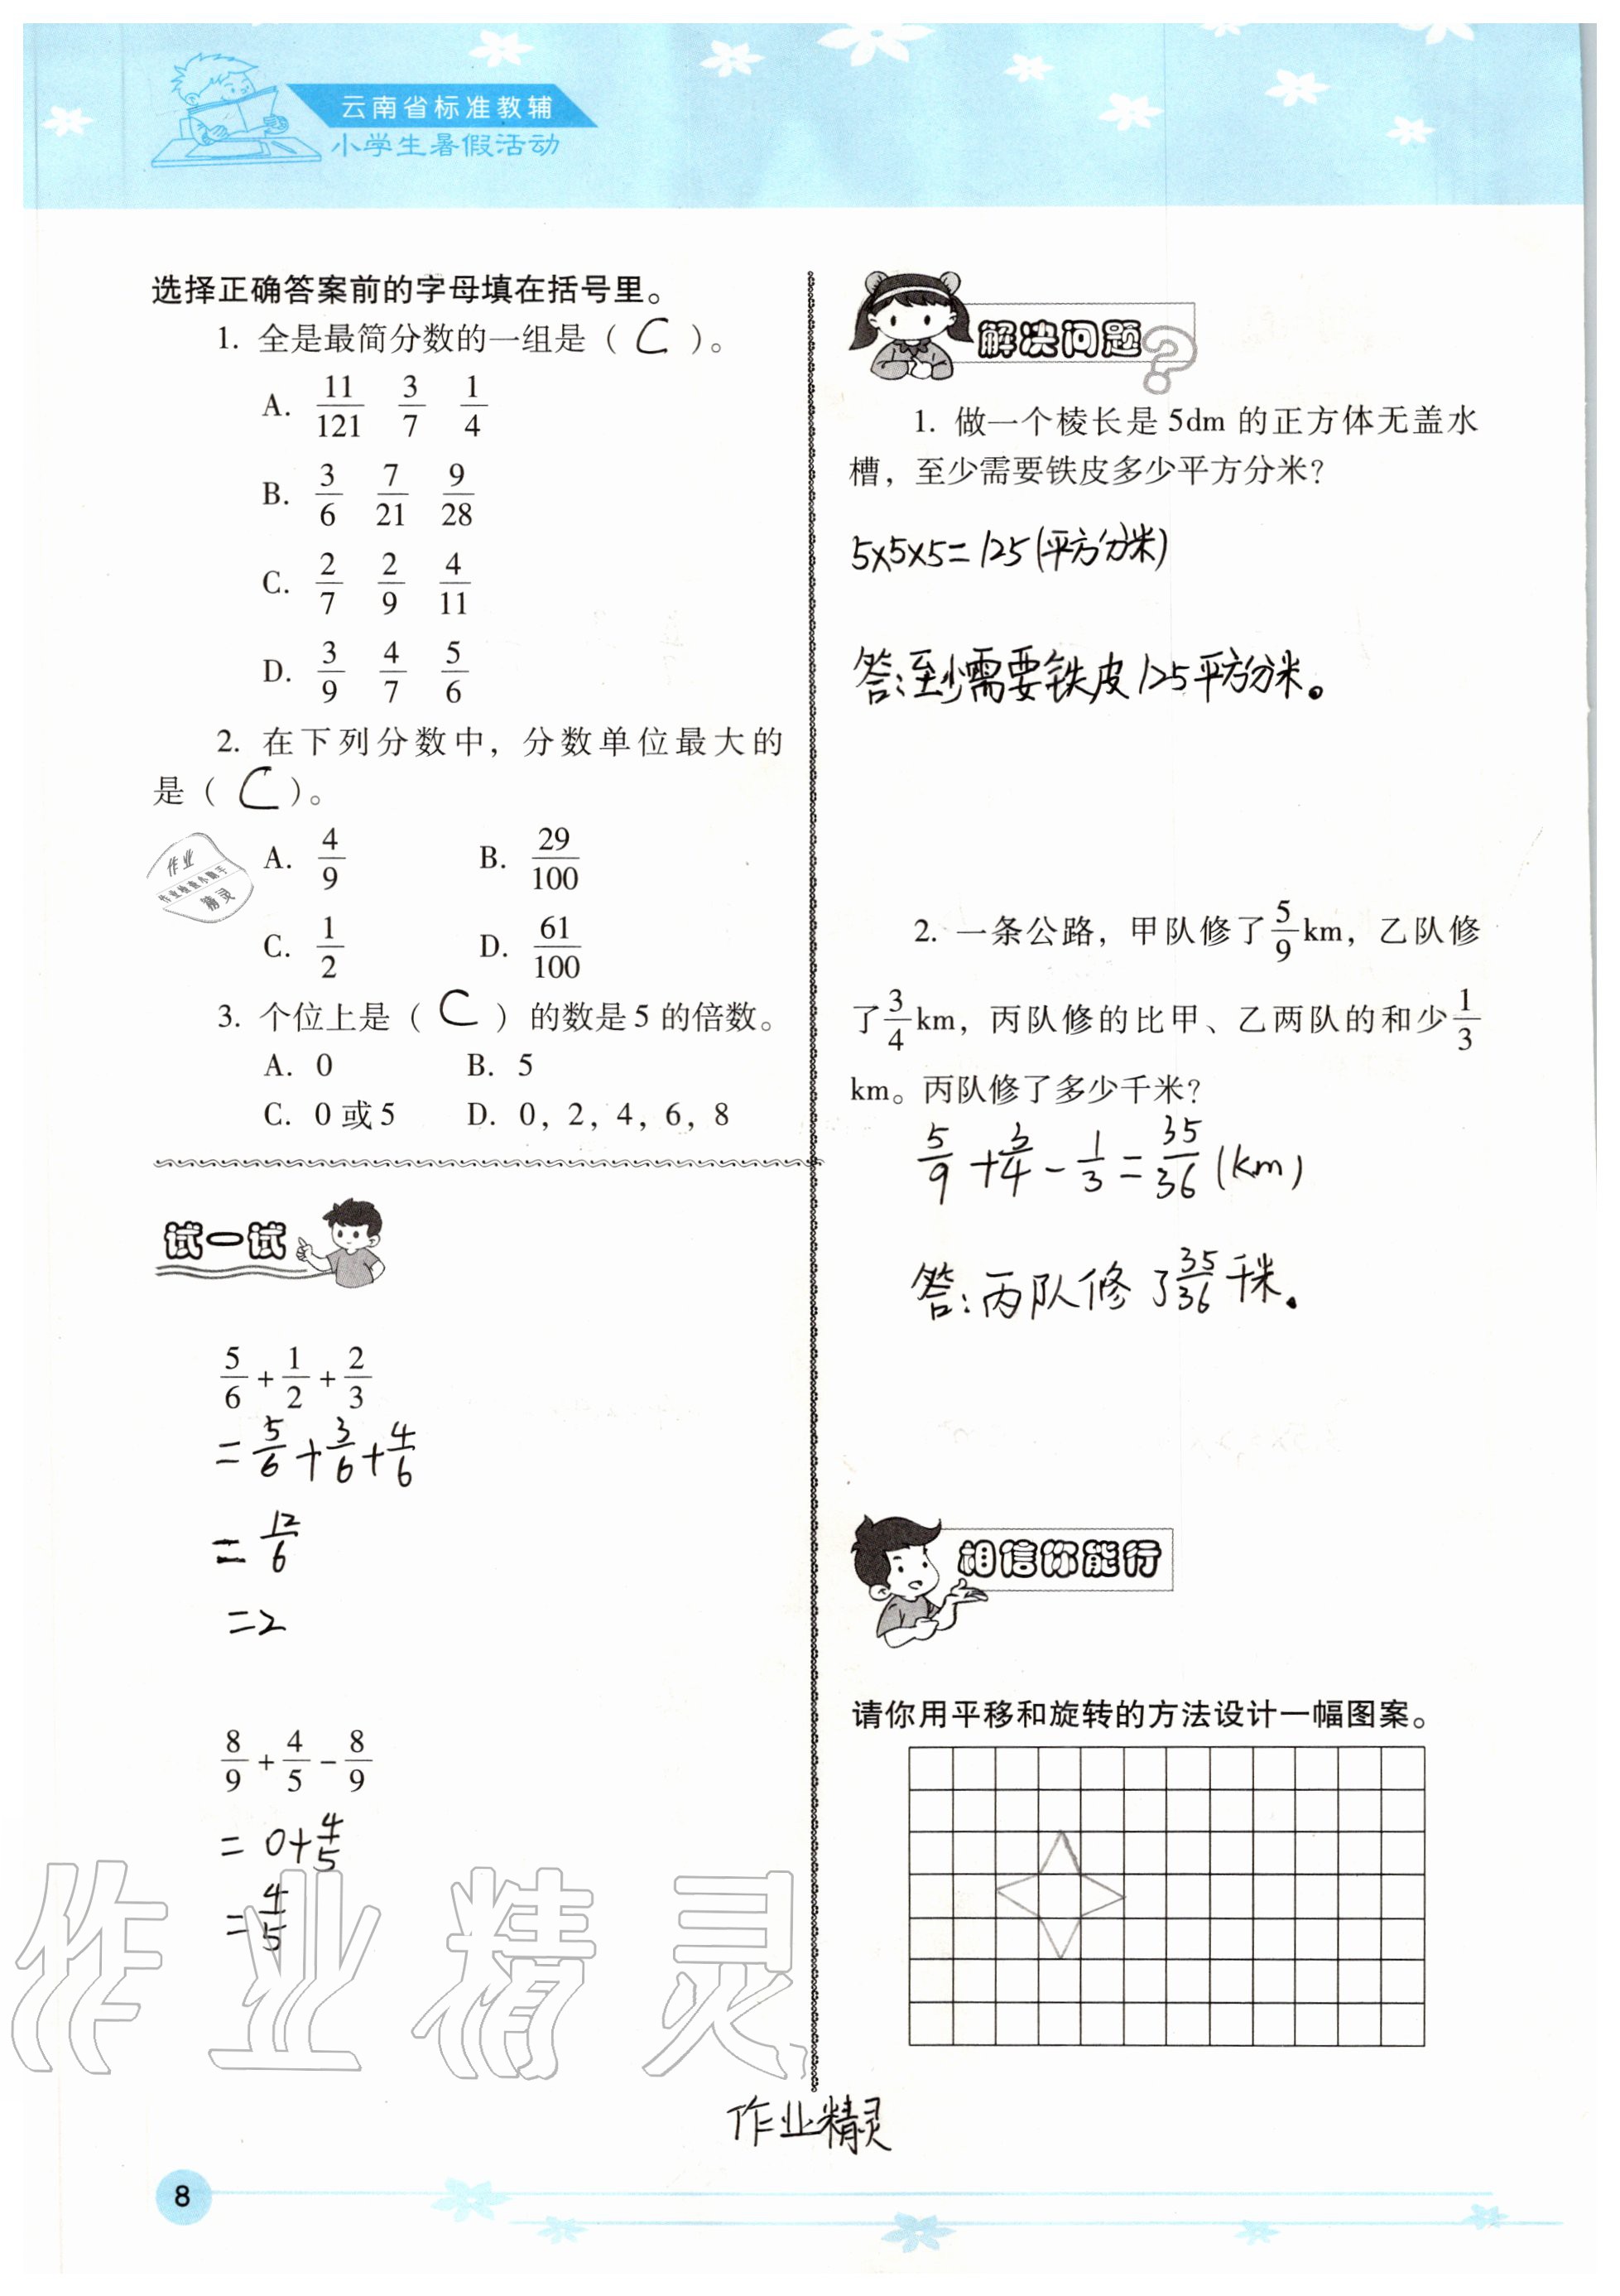 云南省标准教辅
小学生暑假活动
选择正确答案前的字母填在括号里。
1. 全是最简分数的一组是（ C ）。
A. 11/121 3/7 1/4
B. 3/6 7/21 9/28
C. 2/7 2/9 4/11
D. 3/9 4/7 5/6
2. 在下列分数中，分数单位最大的
是（ C ）。
A. 4/9 B. 29/100
C. 1/2 D. 61/100
3. 个位上是（ C ）的数是5的倍数。
A. 0 B. 5
C. 0或5 D. 0，2，4，6，8
作业
作业检查小助手
精灵
试一试
5/6+1/2+2/3
=5/6+3/6+4/6
=12/6
=2
8/9+4/5-8/9
=0+4/5
=4/5
解决问题?
1. 做一个棱长是5dm的正方体无盖水
槽，至少需要铁皮多少平方分米?
5×5×5=125(平方分米)
答:至少需要铁皮125平方分米。
2. 一条公路，甲队修了5/9km，乙队修
了3/4km，丙队修的比甲、乙两队的和少1/3
km。丙队修了多少千米?
5/9+3/4-1/3=35/36(km)
答:丙队修了35/36千米.
相信你能行
请你用平移和旋转的方法设计一幅图案。
作业精灵
作业精灵
8